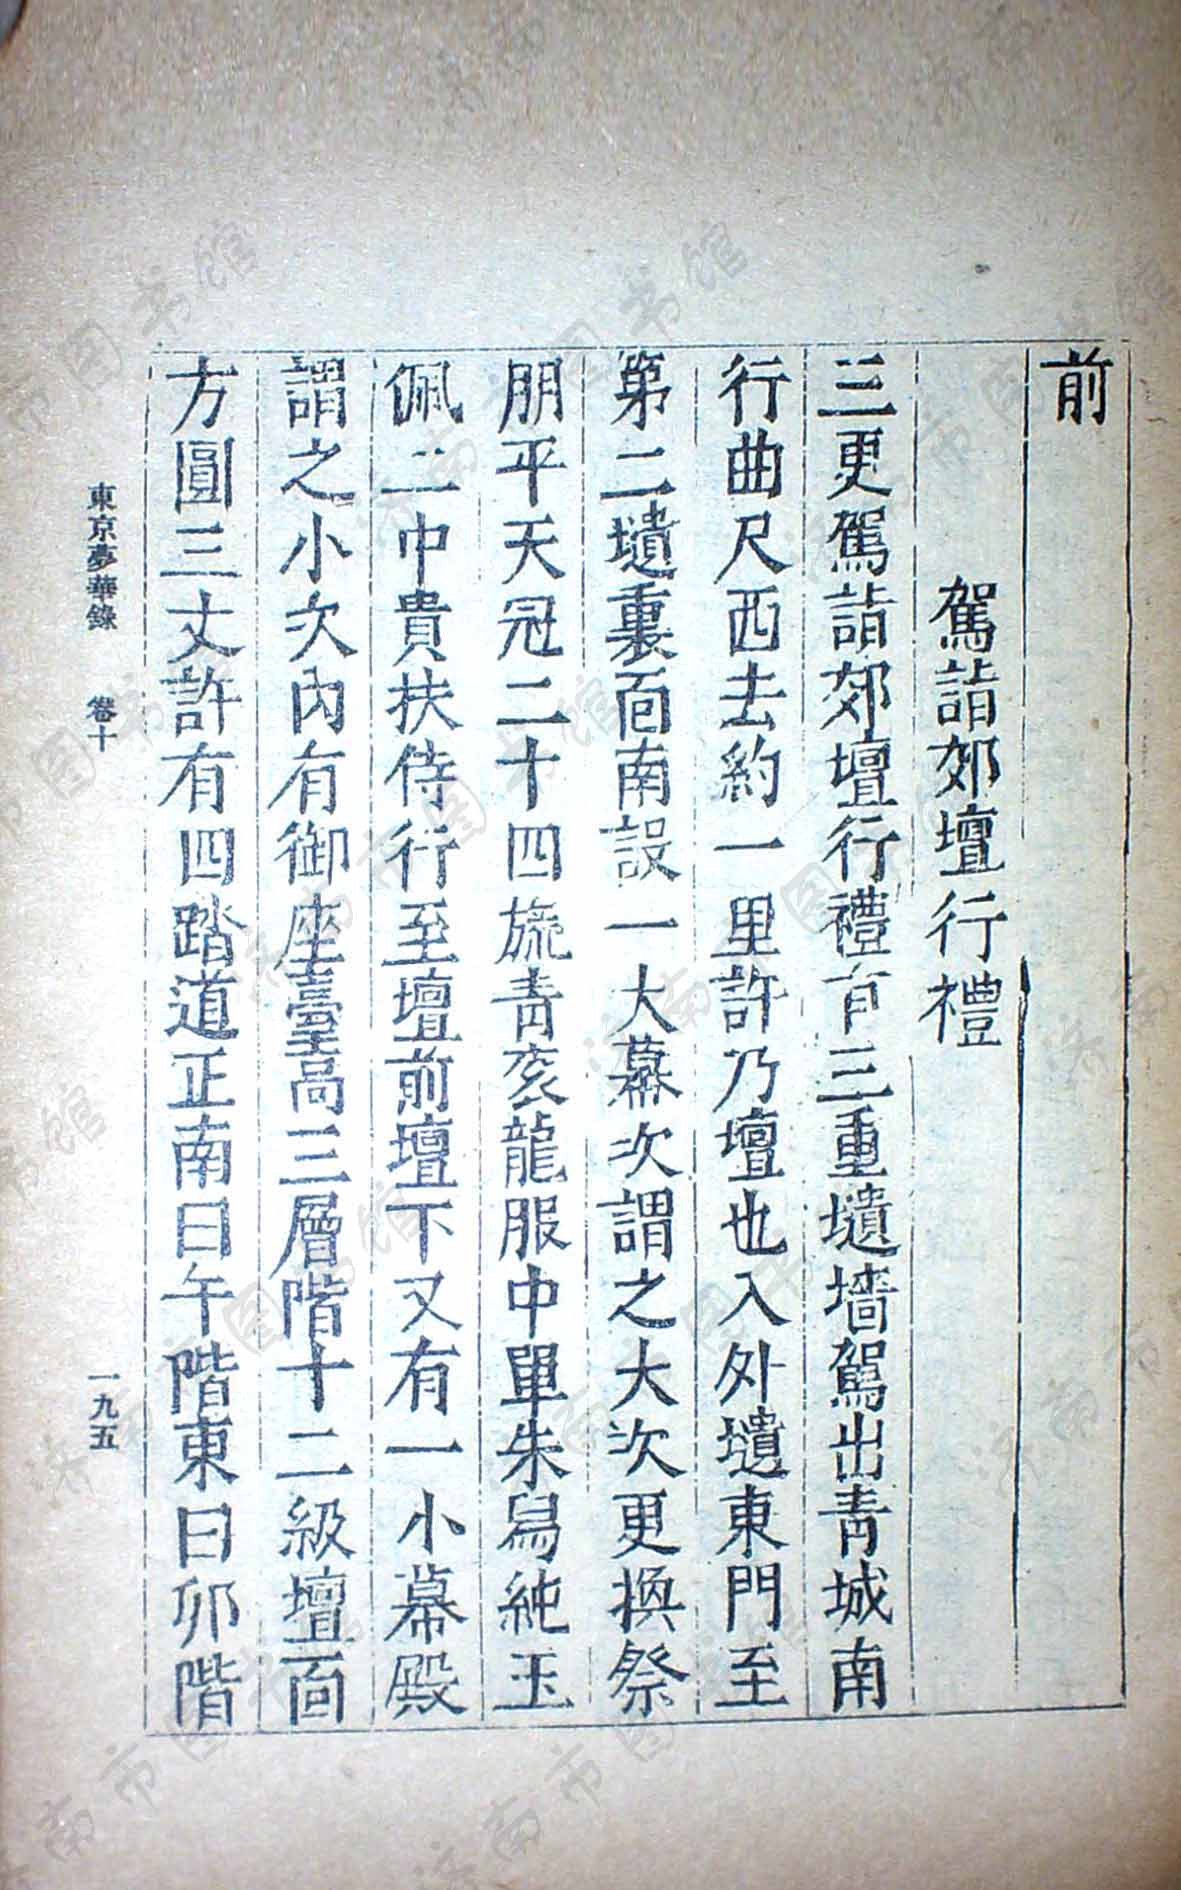 前
駕詣郊壇行禮
三更駕詣郊壇行禮有三重壝墻駕出青城南
行曲尺西去約一里許乃壇也入外壝東門至
第二壝裏面南設一大幕次謂之大次更換祭
朋平天冠二十四旒青衮龍服中單朱舄純玉
佩二中貴扶侍行至壇前壇下又有一小幕殿
謂之小次內有御座臺高三層階十二級壇面
方圓三丈許有四踏道正南曰午階東曰卯階
東京夢華錄 卷十 一九五
济南市图书馆